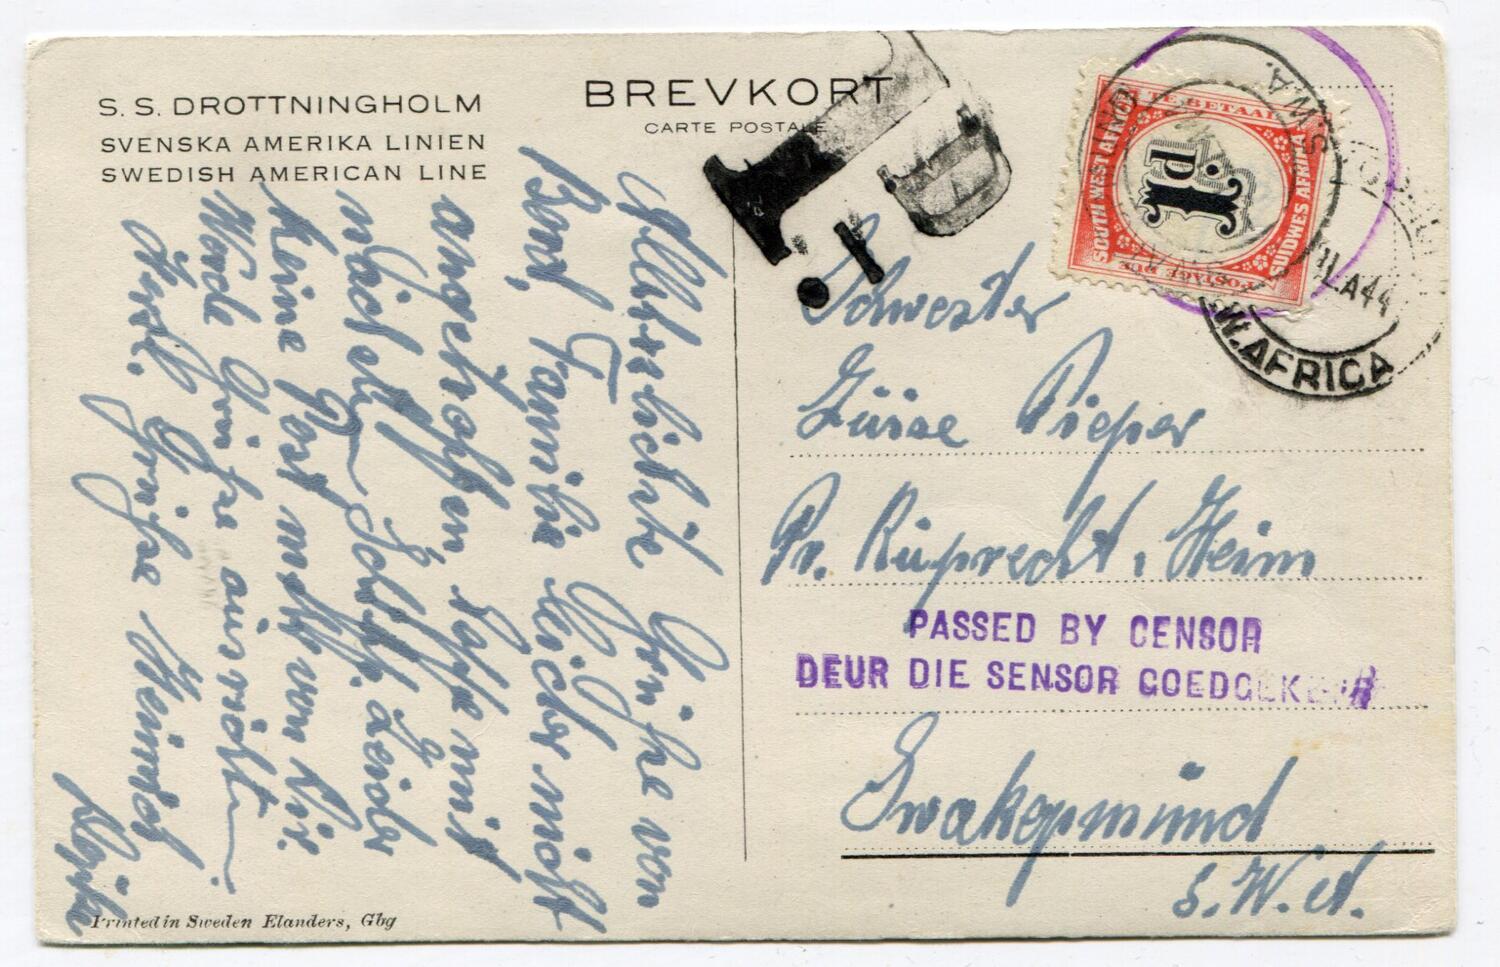 S. S. DROTTNINGHOLM
SVENSKA AMERIKA LINIEN
SWEDISH AMERICAN LINE
BREVKORT
CARTE POSTALE
SOUTH WEST AFRICA
TE BETAAL
SUIDWES AFRIKA
POSTAGE DUE
1d.
S.W.A.
LA44
W. AFRICA
Schwester
Luise Pieper
Pr. Ruprecht. Heim
PASSED BY CENSOR
DEUR DIE SENSOR GOEDGEKEUR
Swakopmünd
S.W.A.
Allherzlichste Grüße von
Bord, Familie leider nicht
angetroffen, hoffe mit
nächst. Schiff. Leider
keine Post mehr von Dir
Werde Grüße ausricht.
Herzl. Grüße Heinrich
Printed in Sweden Elanders, Gbg